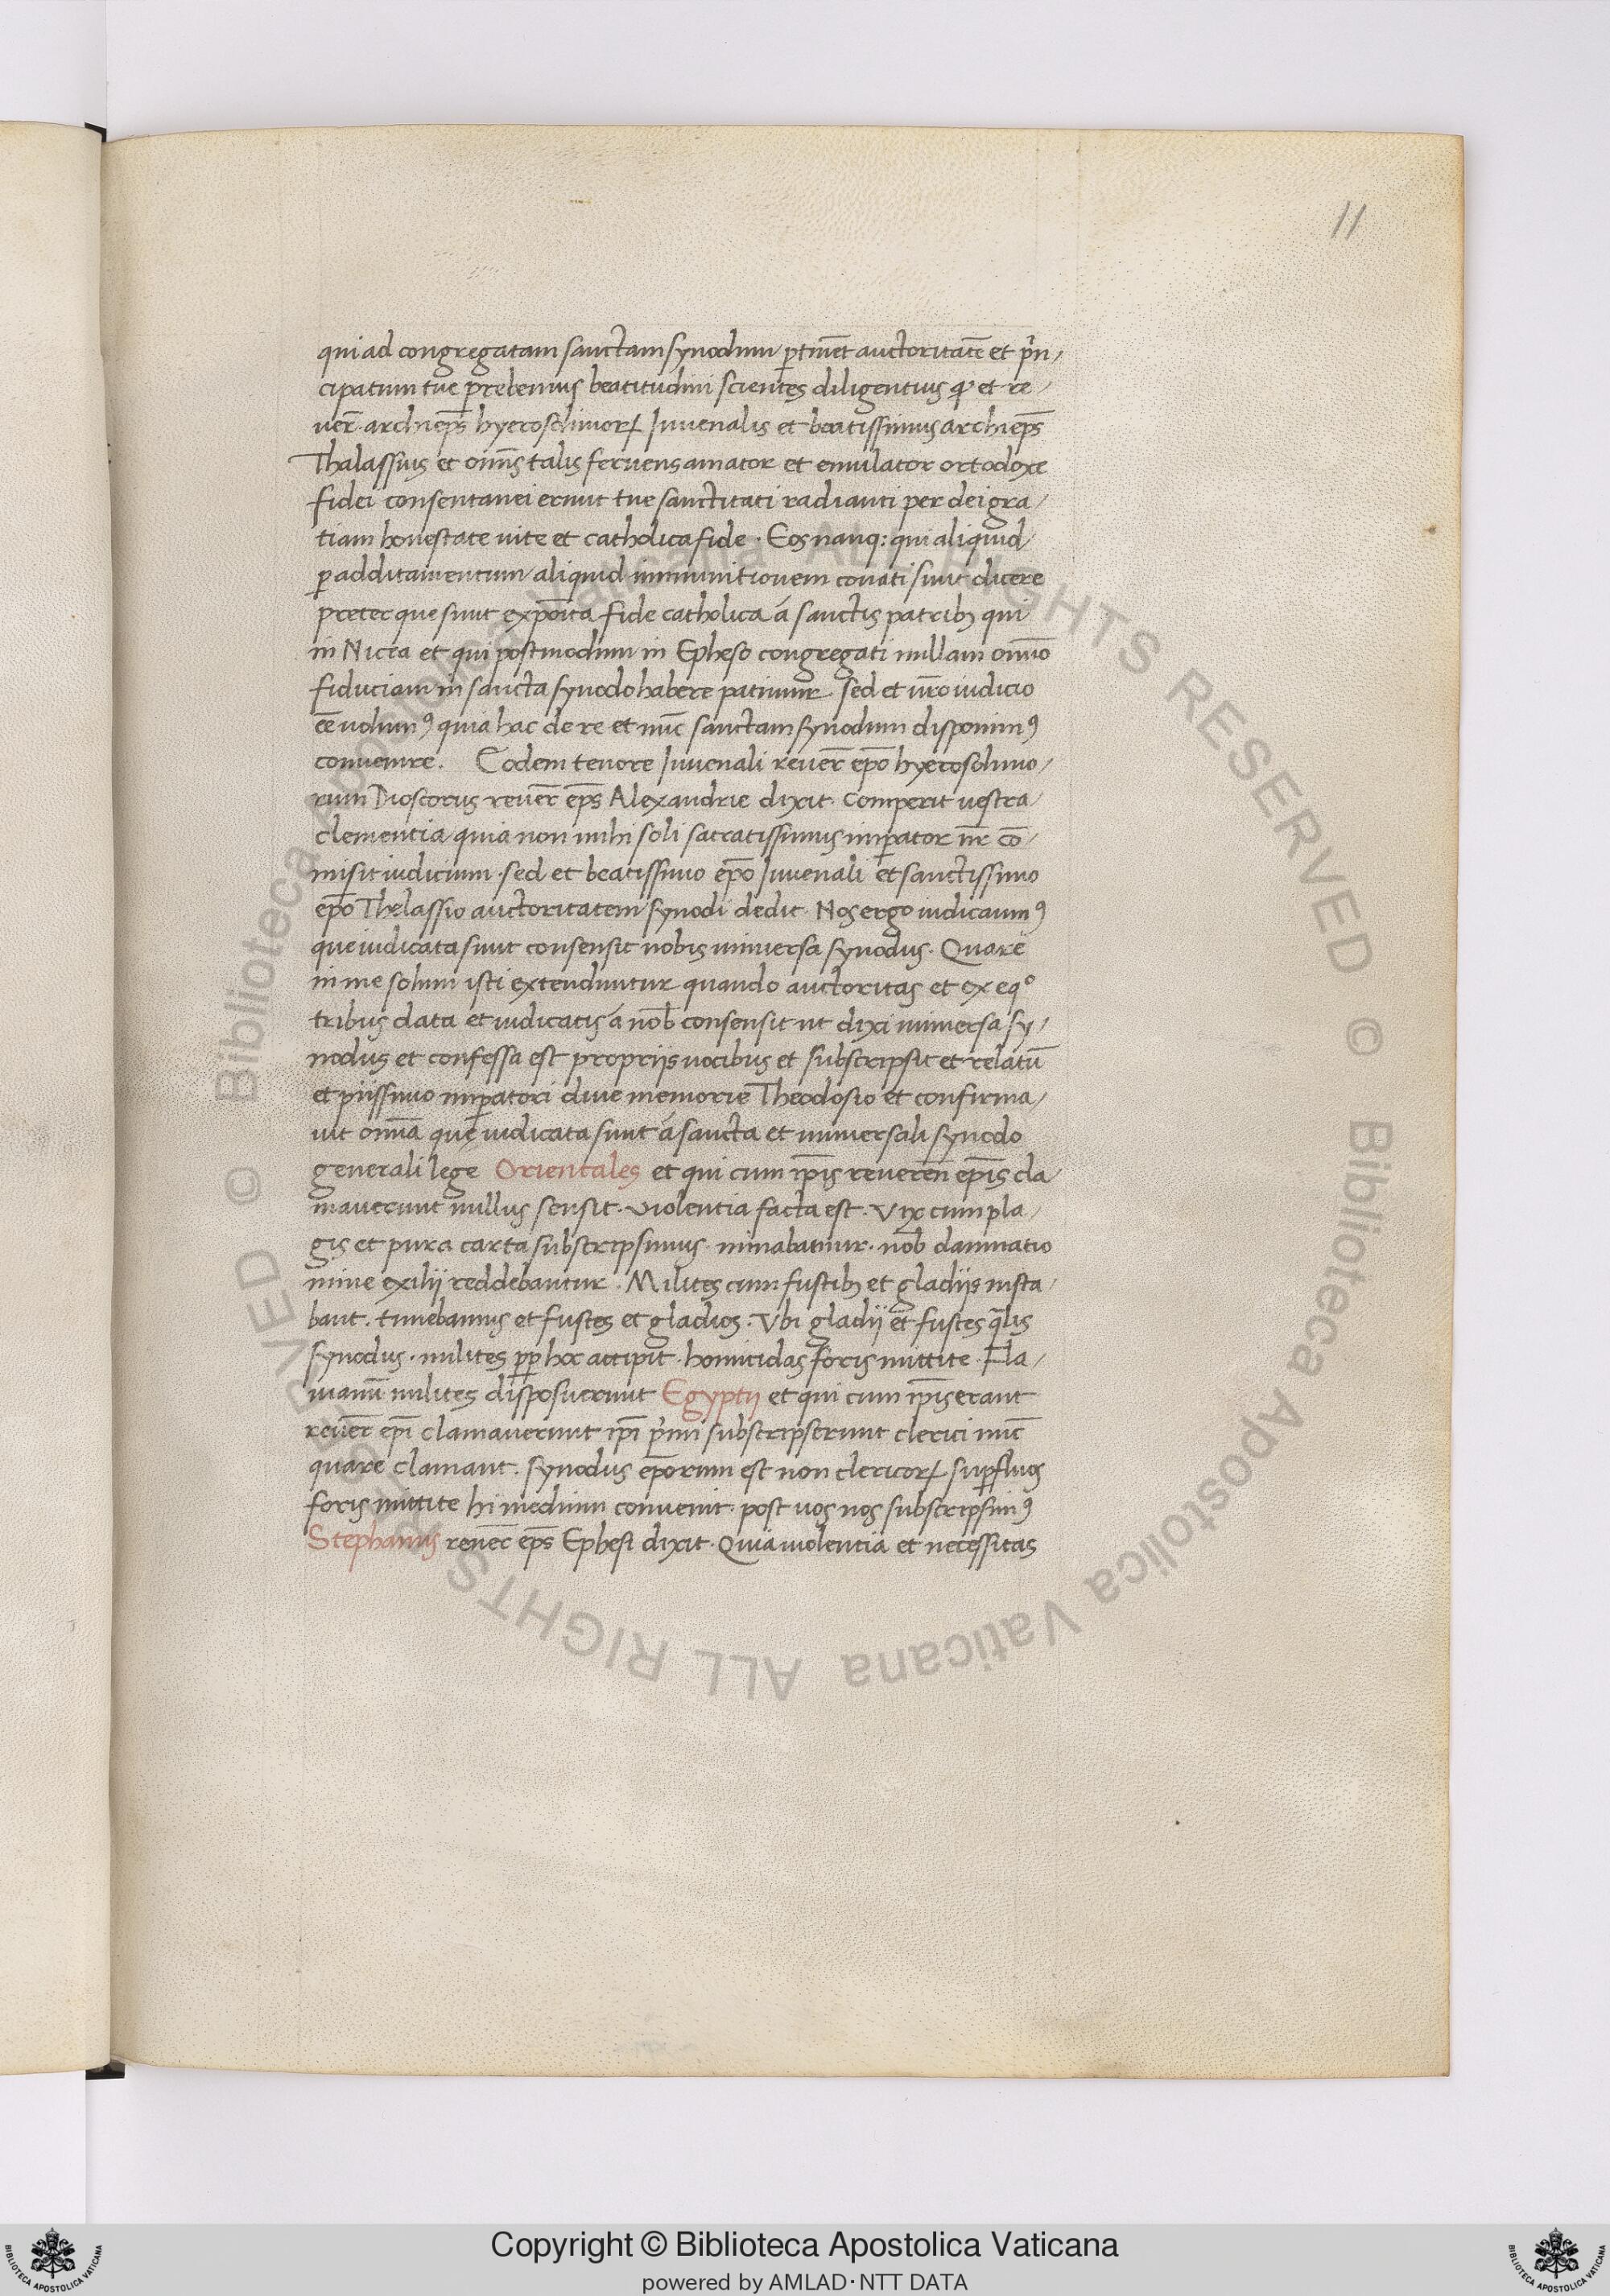 11
qui ad congregatam sanctam synodum ꝑtinēt auctoritatē et p̄n/
cipatum tue prebemus beatitudini scientes diligentius ꝙ et re/
uer̄. archiep̄s hyerosolimoꝝ Iuuenalis et beatissimus archiep̄s
Thalassius et om̄s talis feruens amator et emulator ortodoxe
fidei consentanei erunt tue sanctitati radianti per dei gra/
tiam honestate uite et catholica fide. Eos nanq: qui aliquid
ꝑ additamentum aliquid imminitionem conati sunt dicere
preter que sunt expoīta fide catholica á sanctis patribꝫ qui
in Nicea et qui postmodum in Epheso congregati nullam om̄o
fiduciam in sancta synodo habere patimur. sed et ur̄o iudicio
ēē uolumꝰ quia hac de re et nūc sanctam synodum disponimꝰ
conuenire. Eodem tenore Iuuenali reuer̄ ep̄o hyerosolimo/
rum Dioscorus reuer̄ ep̄s Alexandrie dixit. Comperit uestra
clementia quia non mihi soli sacratissimus imꝑator nr̄ cō/
misit iudicium. sed et beatissimo ep̄o Iuuenali et sanctissimo
ep̄o Thelassio auctoritatem synodi dedit. Nos ergo iudicauimꝰ
que iudicata sunt consensit nobis uniuersa synodus. Quare
in me solum isti extenduntur quando auctoritas et ex eqº
tribus data et iudicatis á nob̄ consensit ut dixi uniuersa sy/
nodus et confessa est propriis uocibus et subscripsit et relatū
et piissimo imꝑatori diue memorie Theodosio et confirma/
uit om̄ia que iudicata sunt á sancta et uniuersali synodo
generali lege Orientales et qui cum ip̄is reueren̄ ep̄is cla
mauerunt nullus sensit. uiolentia facta est. Vix cum pla/
gis et pura carta subscripsimus. minabatiur. nob̄ damnatio
mine exilij reddebantur. Milites cum fustibꝫ et gladijs insta/
bant. timebamus et fustes et gladios. Vbi gladij et fustes q̄lis
synodus. milites ꝓꝑ hoc accipit. homicidas foris mittite. Fla/
uianū milites disposuerunt Egyptij et qui cum ip̄is erant
reuer̄ ep̄i clamauerunt ip̄i p̄mi subscripserunt clerici nūc
quare clamant. synodus ep̄orum est non clericoꝝ suꝑfluos
foris mittite hi medium conuenit. post uos nos subscripsimꝰ
Stephanus reuer̄ ep̄s Ephesi dixit. Quia uiolentia et necessitas
Copyright © Biblioteca Apostolica Vaticana
powered by AMLAD·NTT DATA
© Biblioteca Apostolica Vaticana ALL RIGHTS RESERVED © Biblioteca Apostolica Vaticana ALL RIGHTS RESERVED
BIBLIOTECA APOSTOLICA VATICANA
BIBLIOTECA APOSTOLICA VATICANA